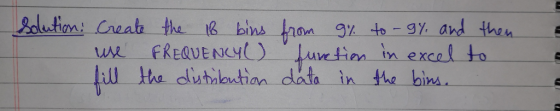 Solution: Create the 18 bins from 9% to -9% and then
use FREQUENCY() function in excel to
fill the distribution data in the bins.